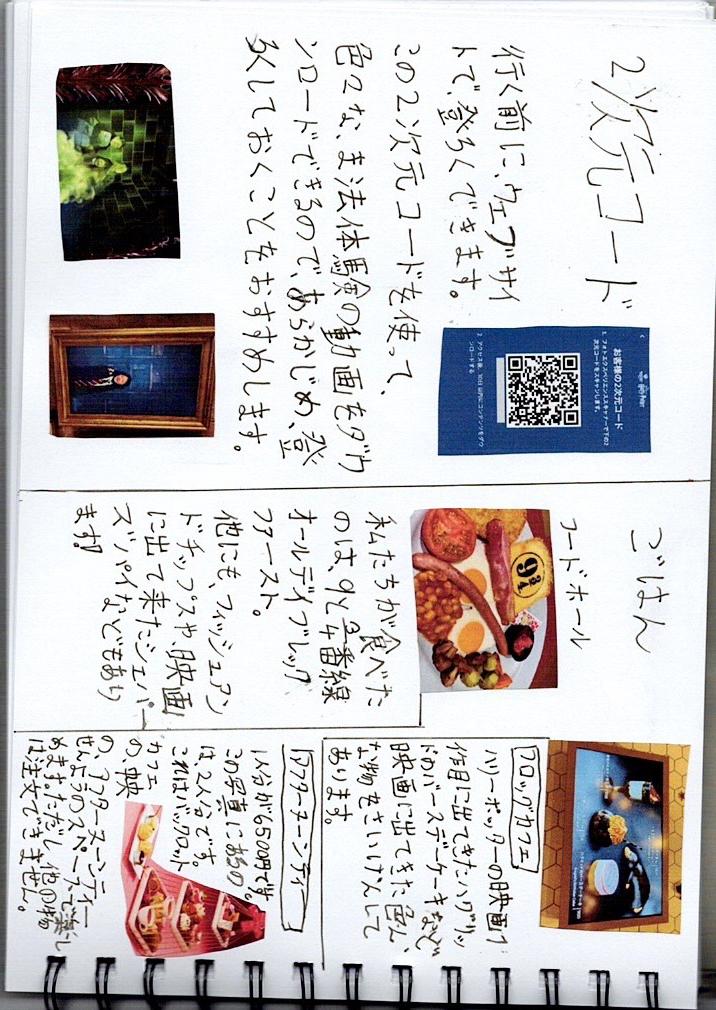 2次元コード
行く前に、ウェブサイ
トで、登ろくできます。
この2次元コードを使って、
色々な、ま法体験の動画をダウ
ンロードできるので、あらかじめ、登
ろくしておくことをおすすめします。
お客様の2次元コード
1. フォトエクスペリエンススキャナーで下の2
次元コードをスキャンします。
ごはん
フードホール
9 3/4
私たちが食べた
のは、9と3/4番線
オールデイブレック
ファースト。
他にも、フィッシュアン
ドチップスや、映画
に出て来たシェパー
ズパイなどもあり
ます!
フロッグカフェ
ハリーポッターの映画1
作目に出てきたハグリッ
ドのバースデーケーキなど
映画に出てきた色んな
物をさいげんして
あります。
アフターヌーンティー
1人分が6500円です。
この写真にあるの
は2人分です。
これはバックロット
カフェ
の、映
の、アフターヌーンティー
せんようのスペースで楽し
めます。ただし他の物
は注文できません。